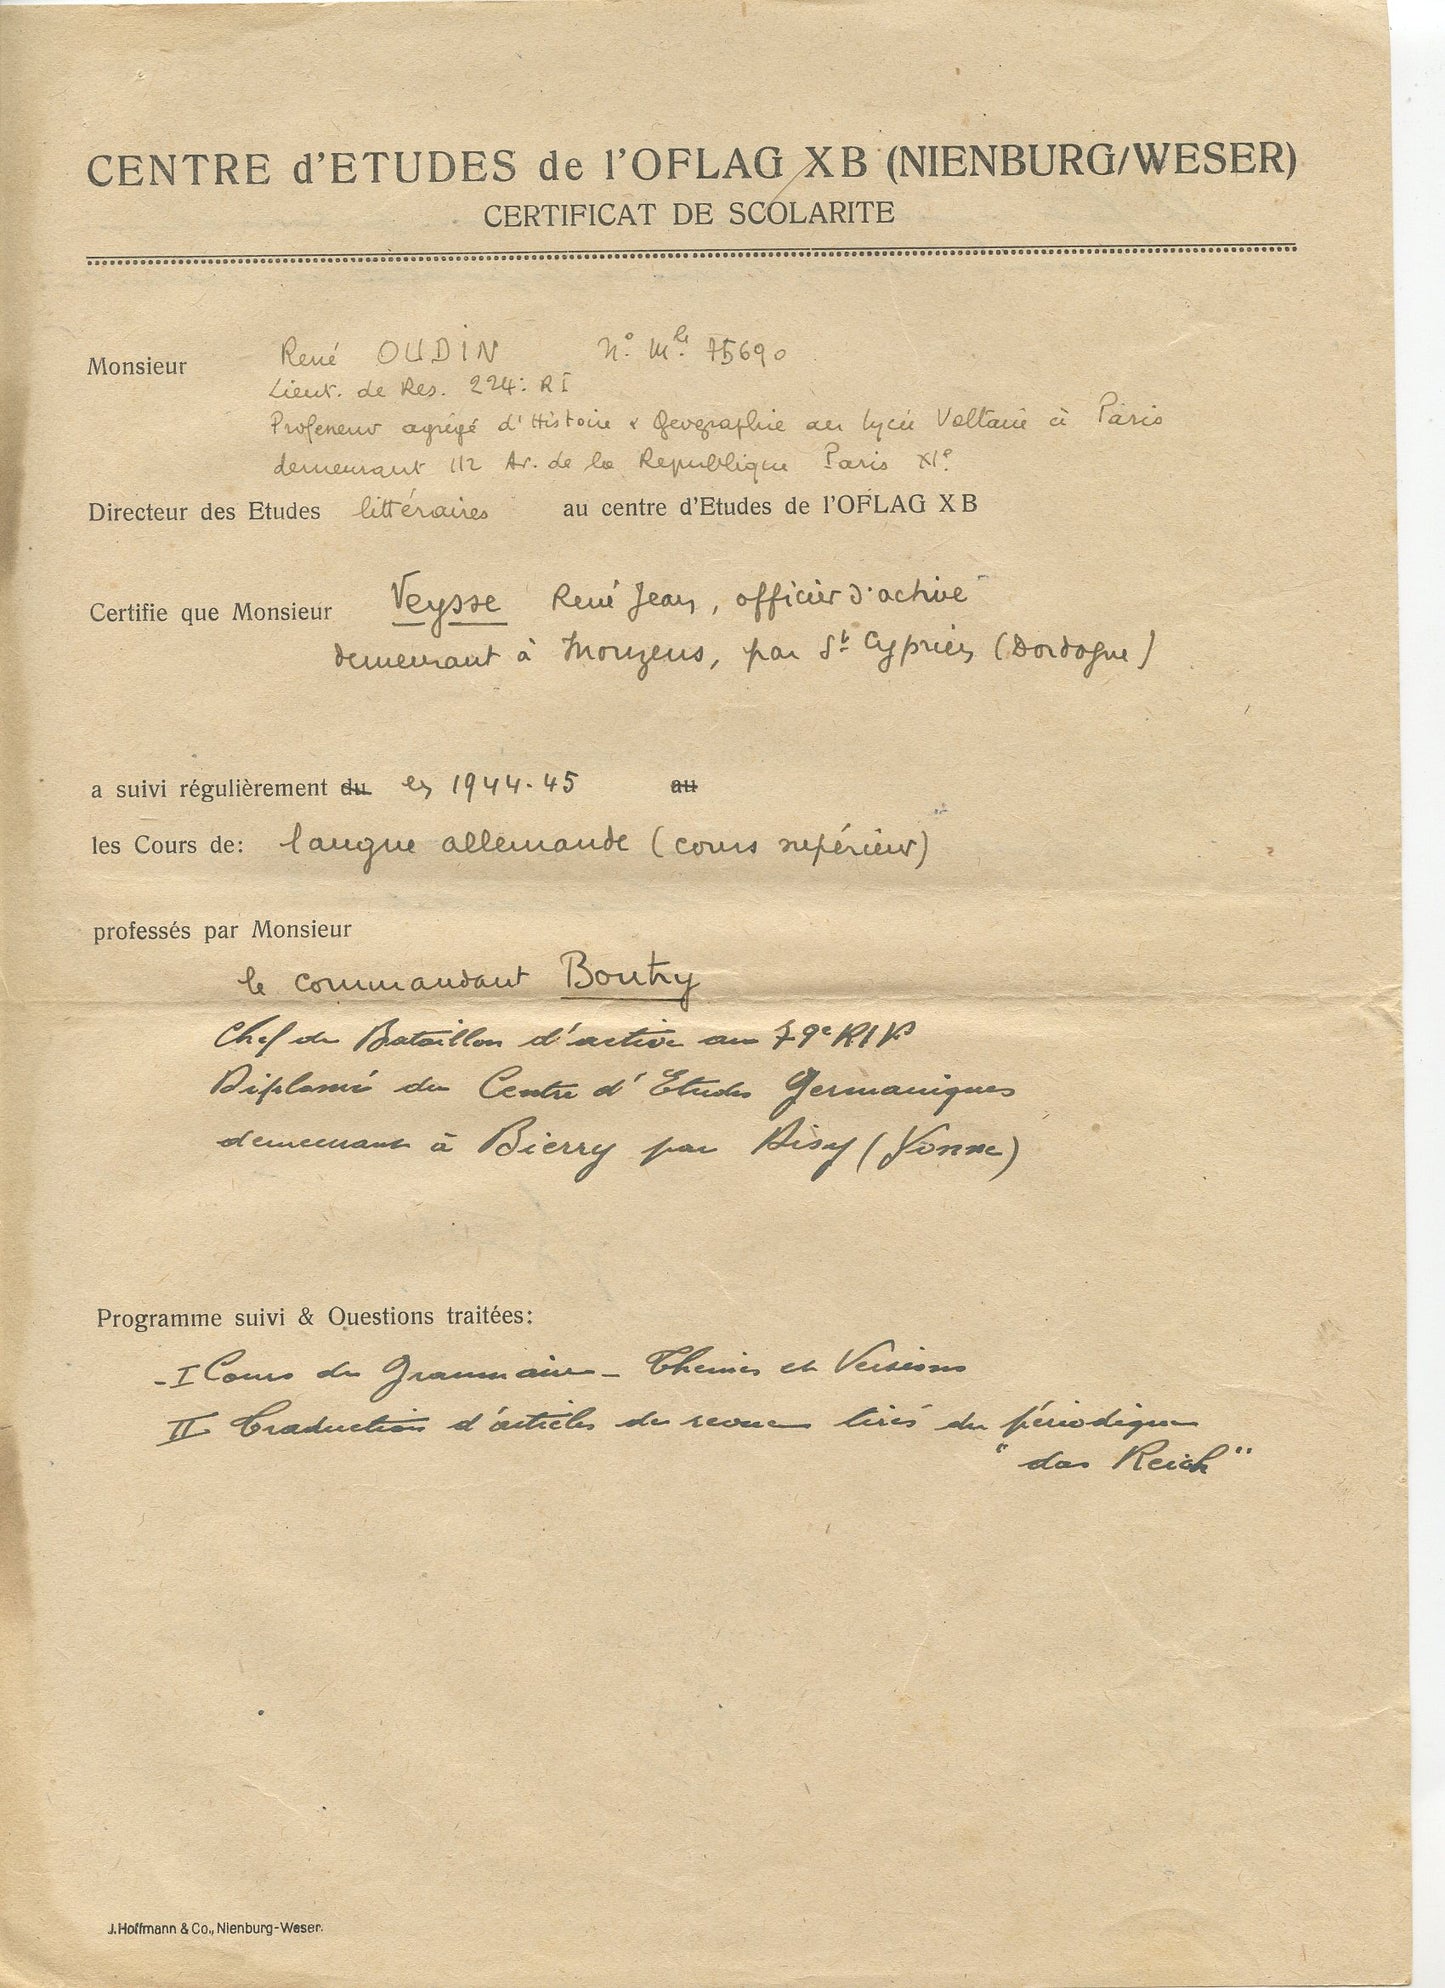 CENTRE d'ETUDES de l'OFLAG XB (NIENBURG/WESER)
CERTIFICAT DE SCOLARITE
Monsieur René OUDIN N° Mle 75690
Lieut. de Res. 224e RI
Professeur agrégé d'Histoire & Géographie au lycée Voltaire à Paris
demeurant 112 Av. de la République Paris XIe
Directeur des Etudes littéraires au centre d'Etudes de l'OFLAG XB
Certifie que Monsieur Veysse René Jean, officier d'active
demeurant à Mouzens, par St Cyprien (Dordogne)
a suivi régulièrement du en 1944-45 au
les Cours de: langue allemande (cours supérieur)
professés par Monsieur
le commandant Boutry
Chef de Bataillon d'active au 79e RIF
Diplomé du Centre d'Etudes Germaniques
demeurant à Bierry par Aisy (Yonne)
Programme suivi & Questions traitées:
- I Cours de Grammaire - Thèmes et Versions
II Traduction d'articles de revue tirés du périodique
"das Reich"
J. Hoffmann & Co., Nienburg-Weser.